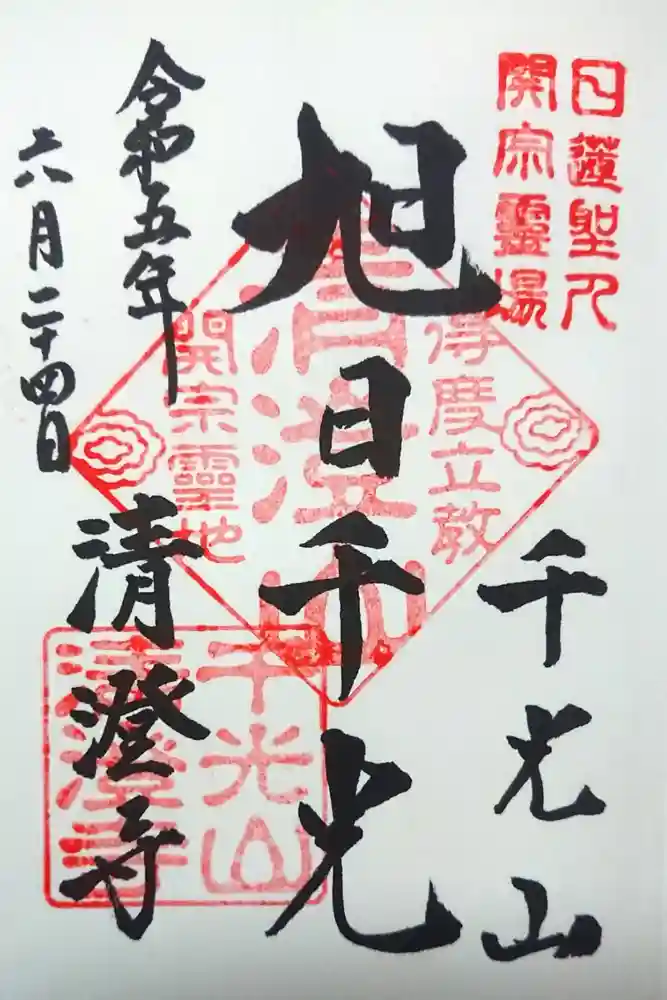 日蓮聖人
開宗靈場
千光山
旭日千光
得度立教
清澄山
開宗靈地
令和五年
六月二十四日
清澄寺
千光山
清澄寺